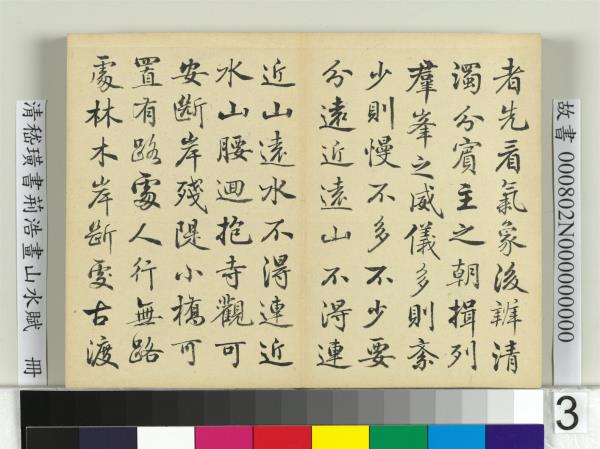 者先看氣象後辨清
濁分賓主之朝揖列
羣峯之威儀多則紊
少則慢不多不少要
分遠近遠山不得連
近山遠水不得連近
水山腰迴抱寺觀可
安斷岸殘隄小橋可
置有路處人行無路
處林木岸斷處古渡
故書 000802N000000000
清嵇璜書荊浩畫山水賦 冊
3